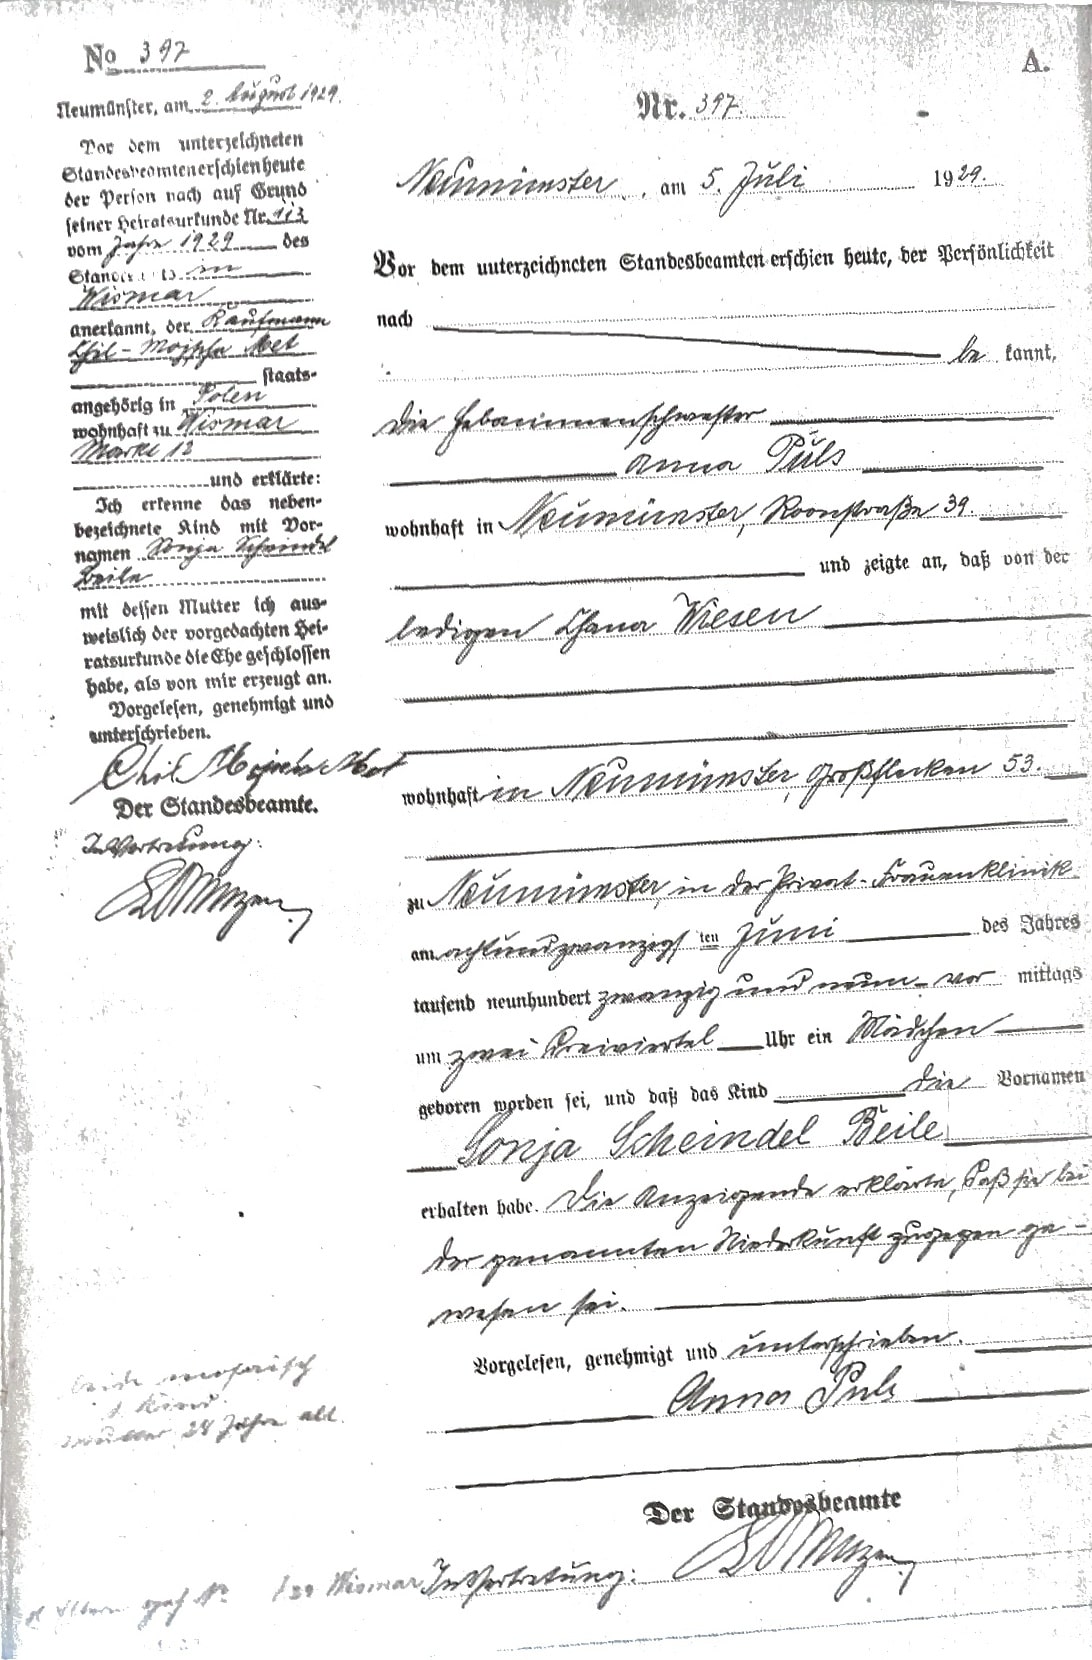 No 397
Neumünster, am 2. August 1929.
Vor dem unterzeichneten
Standesbeamten erschien heute
der Person nach auf Grund
seiner Heiratsurkunde Nr. 113
vom Jahre 1929 des
Standesamts in
Wismar
anerkannt, der Kaufmann
Chil-Mojsche Met
staats-
angehörig in Polen
wohnhaft zu Wismar
Markt 12
und erklärte:
Ich erkenne das neben-
bezeichnete Kind mit Vor-
namen Sonja Scheindel
Beile
mit dessen Mutter ich aus-
weislich der vorgedachten Hei-
ratsurkunde die Ehe geschlossen
habe, als von mir erzeugt an.
Vorgelesen, genehmigt und
unterschrieben.
Chil Met
Der Standesbeamte.
In Vertretung:
A.
Nr. 397.
Neumünster, am 5. Juli 1929.
Vor dem unterzeichneten Standesbeamten erschien heute, der Persönlichkeit
nach
be kannt,
die Hebammenschwester
Anna Puls
wohnhaft in Neumünster, Roonstraße 39.
und zeigte an, daß von der
ledigen Chana Wiesen
wohnhaft in Neumünster, Großflecken 53.
zu Neumünster, in der Privat-Frauenklinik
am achtundzwanzigsten Juni des Jahres
tausend neunhundert zwanzig und neun vor mittags
um zwei dreiviertel Uhr ein Mädchen
geboren worden sei, und daß das Kind die Vornamen
Sonja Scheindel Beile
erhalten habe. Die Anzeigende erklärte, daß sie bei
der genannten Niederkunft zugegen ge-
wesen sei.
Vorgelesen, genehmigt und unterschrieben.
Anna Puls
Der Standesbeamte
In Vertretung:
beide mosaisch
1. Kind.
Mutter 24 Jahre alt.
Eltern Wismar